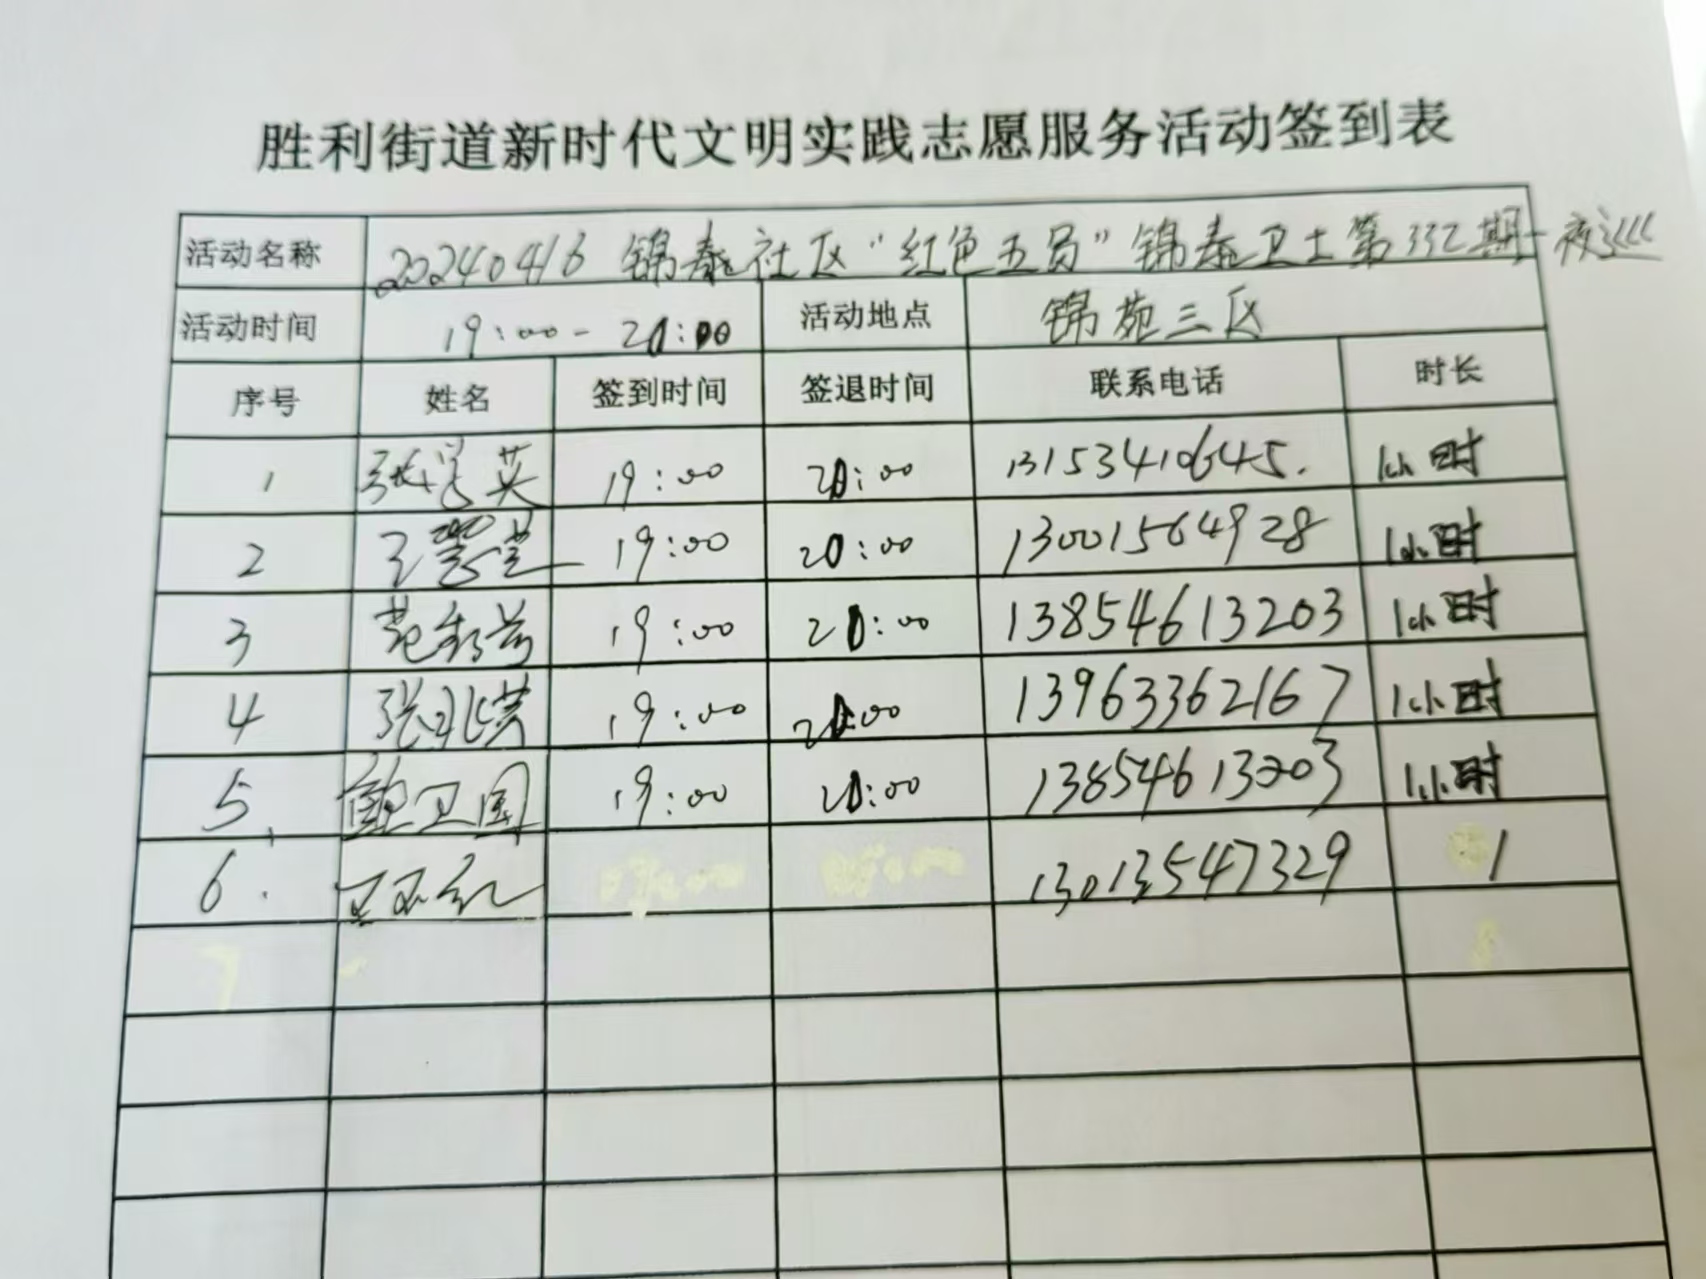 胜利街道新时代文明实践志愿服务活动签到表
活动名称 20240416 锦泰社区"红色五员"锦泰卫士第332期-夜巡
活动时间 19:00-20:00 活动地点 锦苑三区
序号 姓名 签到时间 签退时间 联系电话 时长
1 张学英 19:00 20:00 13153410645. 1小时
2 19:00 20:00 13001564928 1小时
3 19:00 20:00 13854613203 1小时
4 张兆洪 19:00 20:00 13963362167 1小时
5. 鲍卫国 19:00 20:00 13854613203 1小时
6. 13013547329 1